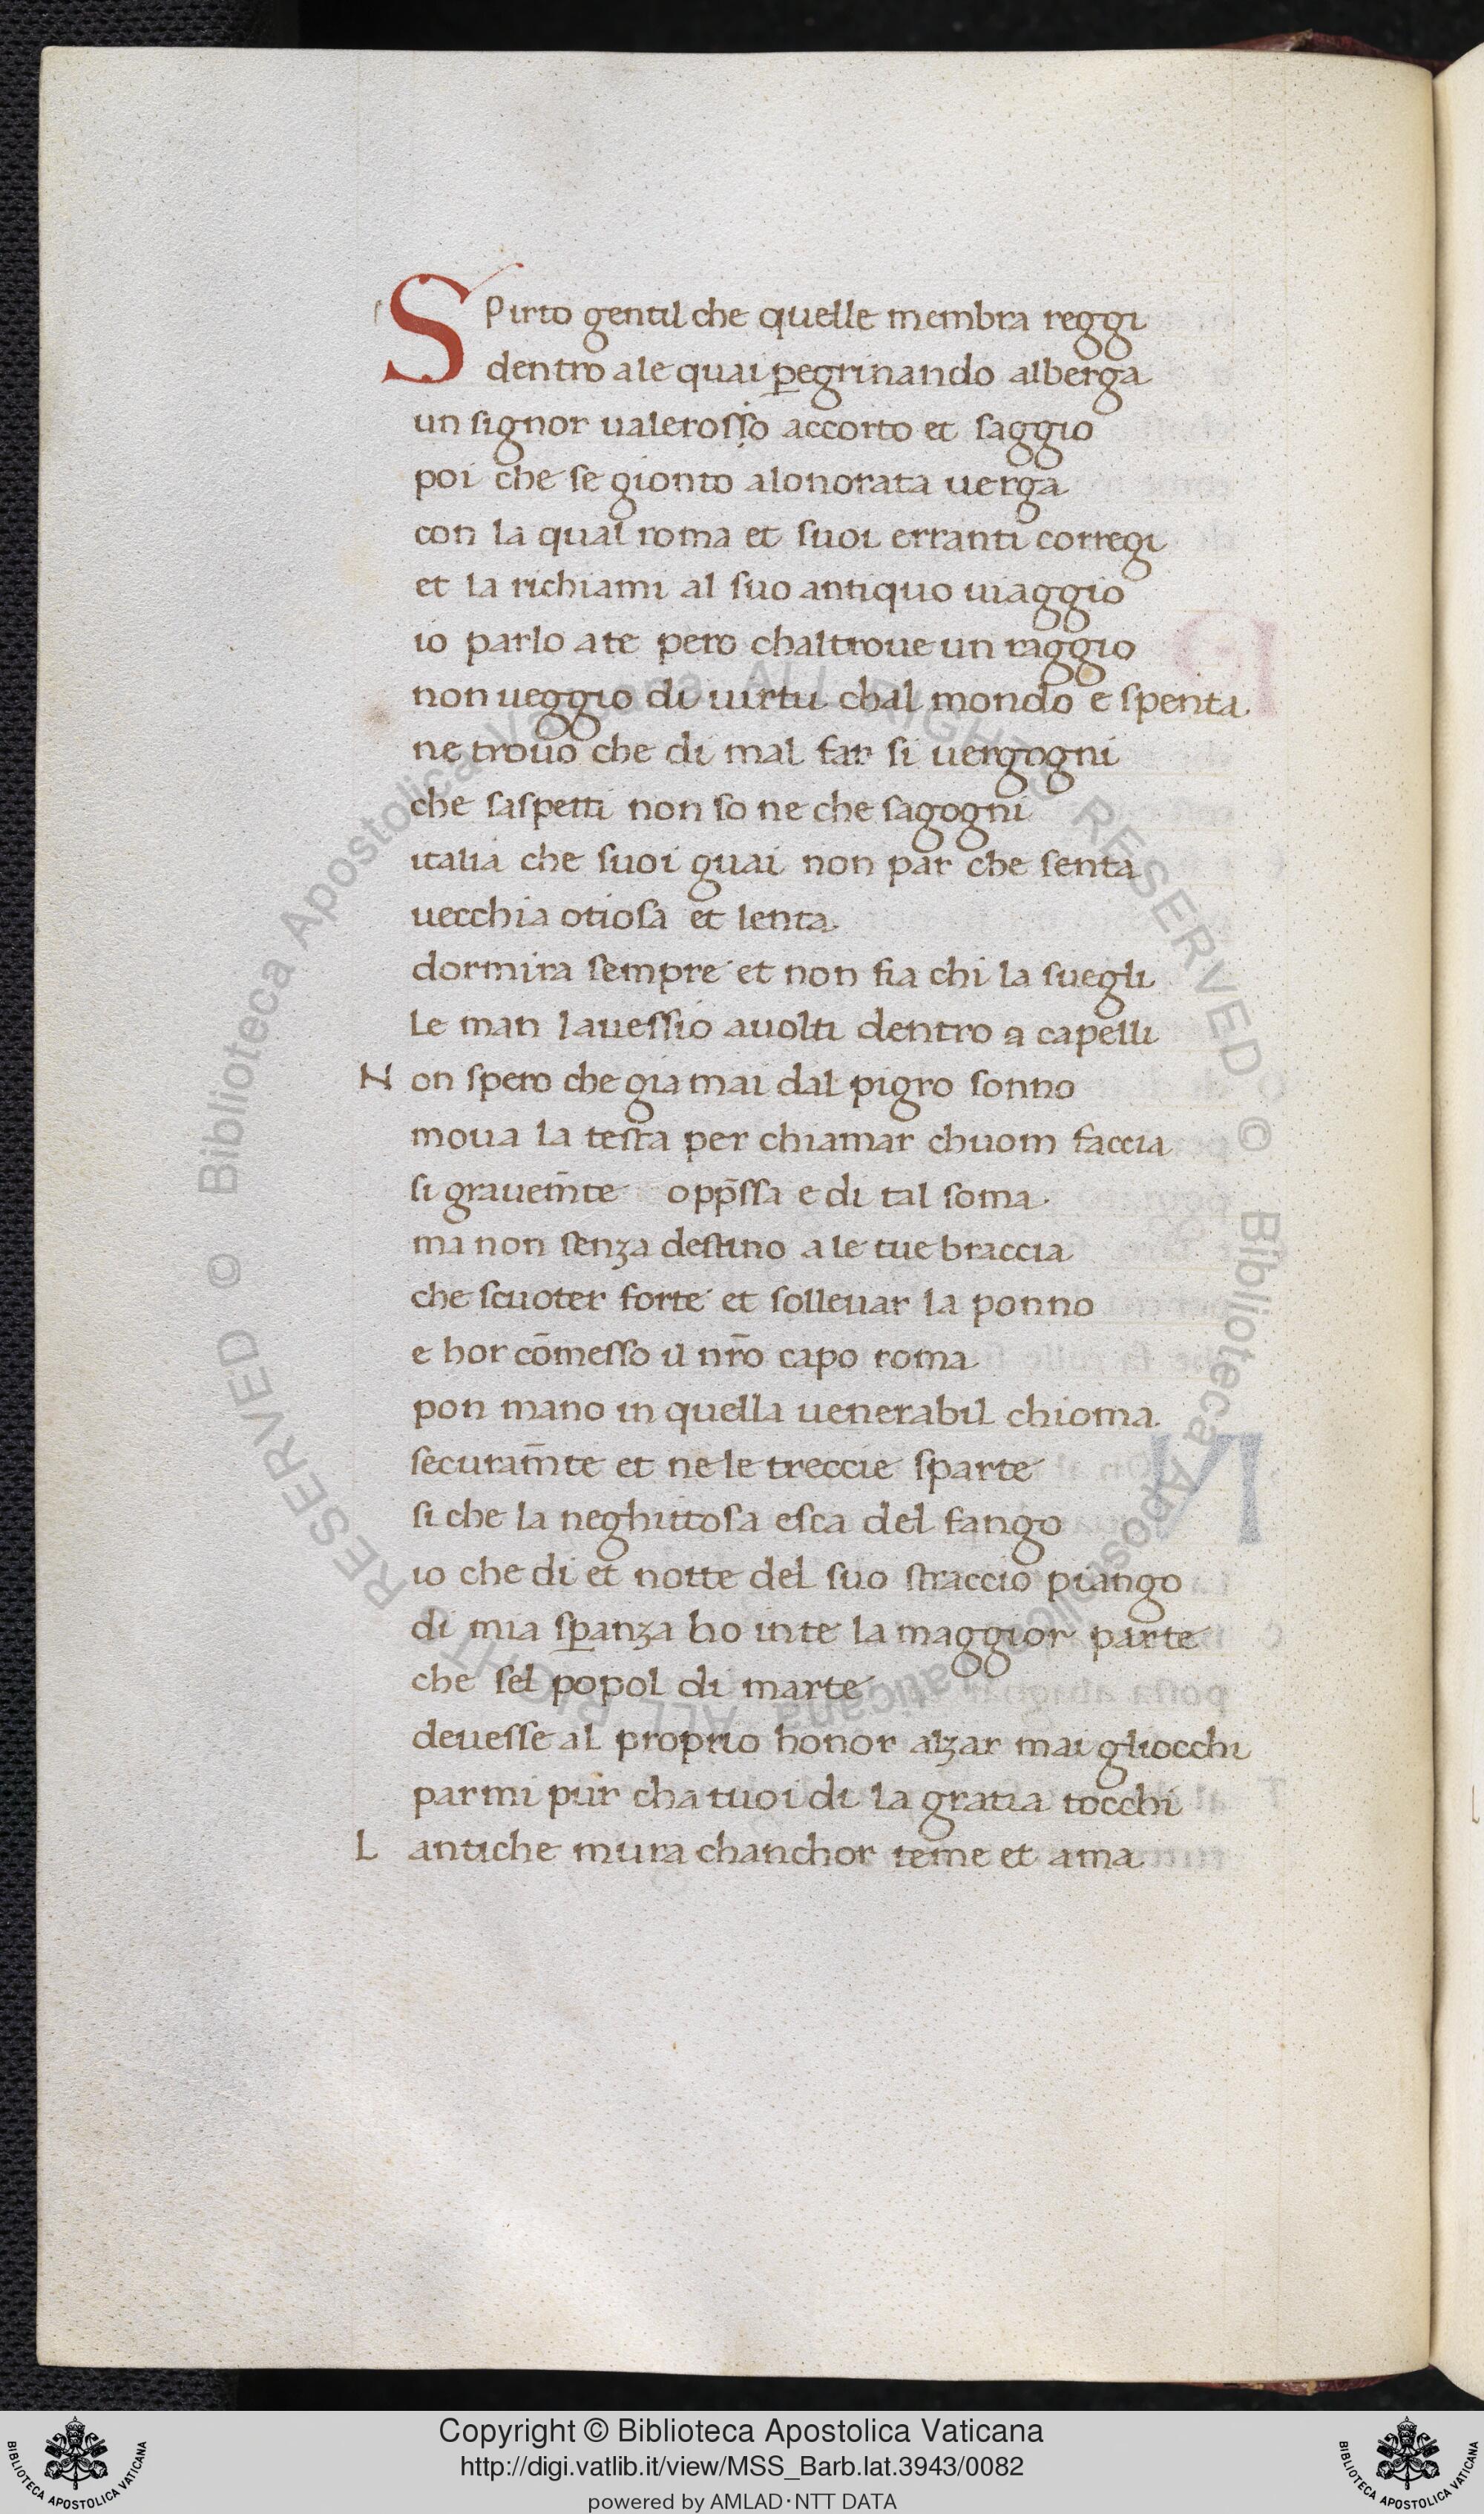 SPirto gentil che quelle membra reggi
dentro ale quai ꝑegrinando alberga
un signor ualerosso accorto et saggio
poi che se gionto alonorata uerga
con la qual roma et suoi erranti corregi
et la richiami al suo antiquo uiaggio
io parlo a te pero chaltroue un raggio
non ueggio di uirtu chal mondo e spenta
ne trouo che di mal far si uergogni
che saspetti non so ne che sagogni
italia che suoi guai non par che senta
uecchia otiosa et lenta
dormira sempre et non fia chi la suegli
Le man lauessio auolti dentro a capelli
N on spero che gia mai dal pigro sonno
moua la testa per chiamar chuom faccia
si grauem̄te opp̄ssa e di tal soma.
ma non senza destino a le tue braccia
che scuoter forte et solleuar la ponno
e hor cōmesso il nr̄o capo roma
pon mano in quella uenerabil chioma
securam̄te et ne le treccie sparte
si che la neghittosa esca del fango
io che di et notte del suo straccio piango
di mia sꝑanza ho in te la maggior parte
che sel popol di marte
deuesse al proprio honor alzar mai gliocchi
parmi pur cha tuoi di la gratia tocchi
L antiche mura chanchor teme et ama
Biblioteca Apostolica Vaticana ALL RIGHTS RESERVED © Biblioteca Apostolica Vaticana ALL RIGHTS RESERVED ©
Copyright © Biblioteca Apostolica Vaticana
http://digi.vatlib.it/view/MSS_Barb.lat.3943/0082
powered by AMLAD·NTT DATA
BIBLIOTECA APOSTOLICA VATICANA
BIBLIOTECA APOSTOLICA VATICANA